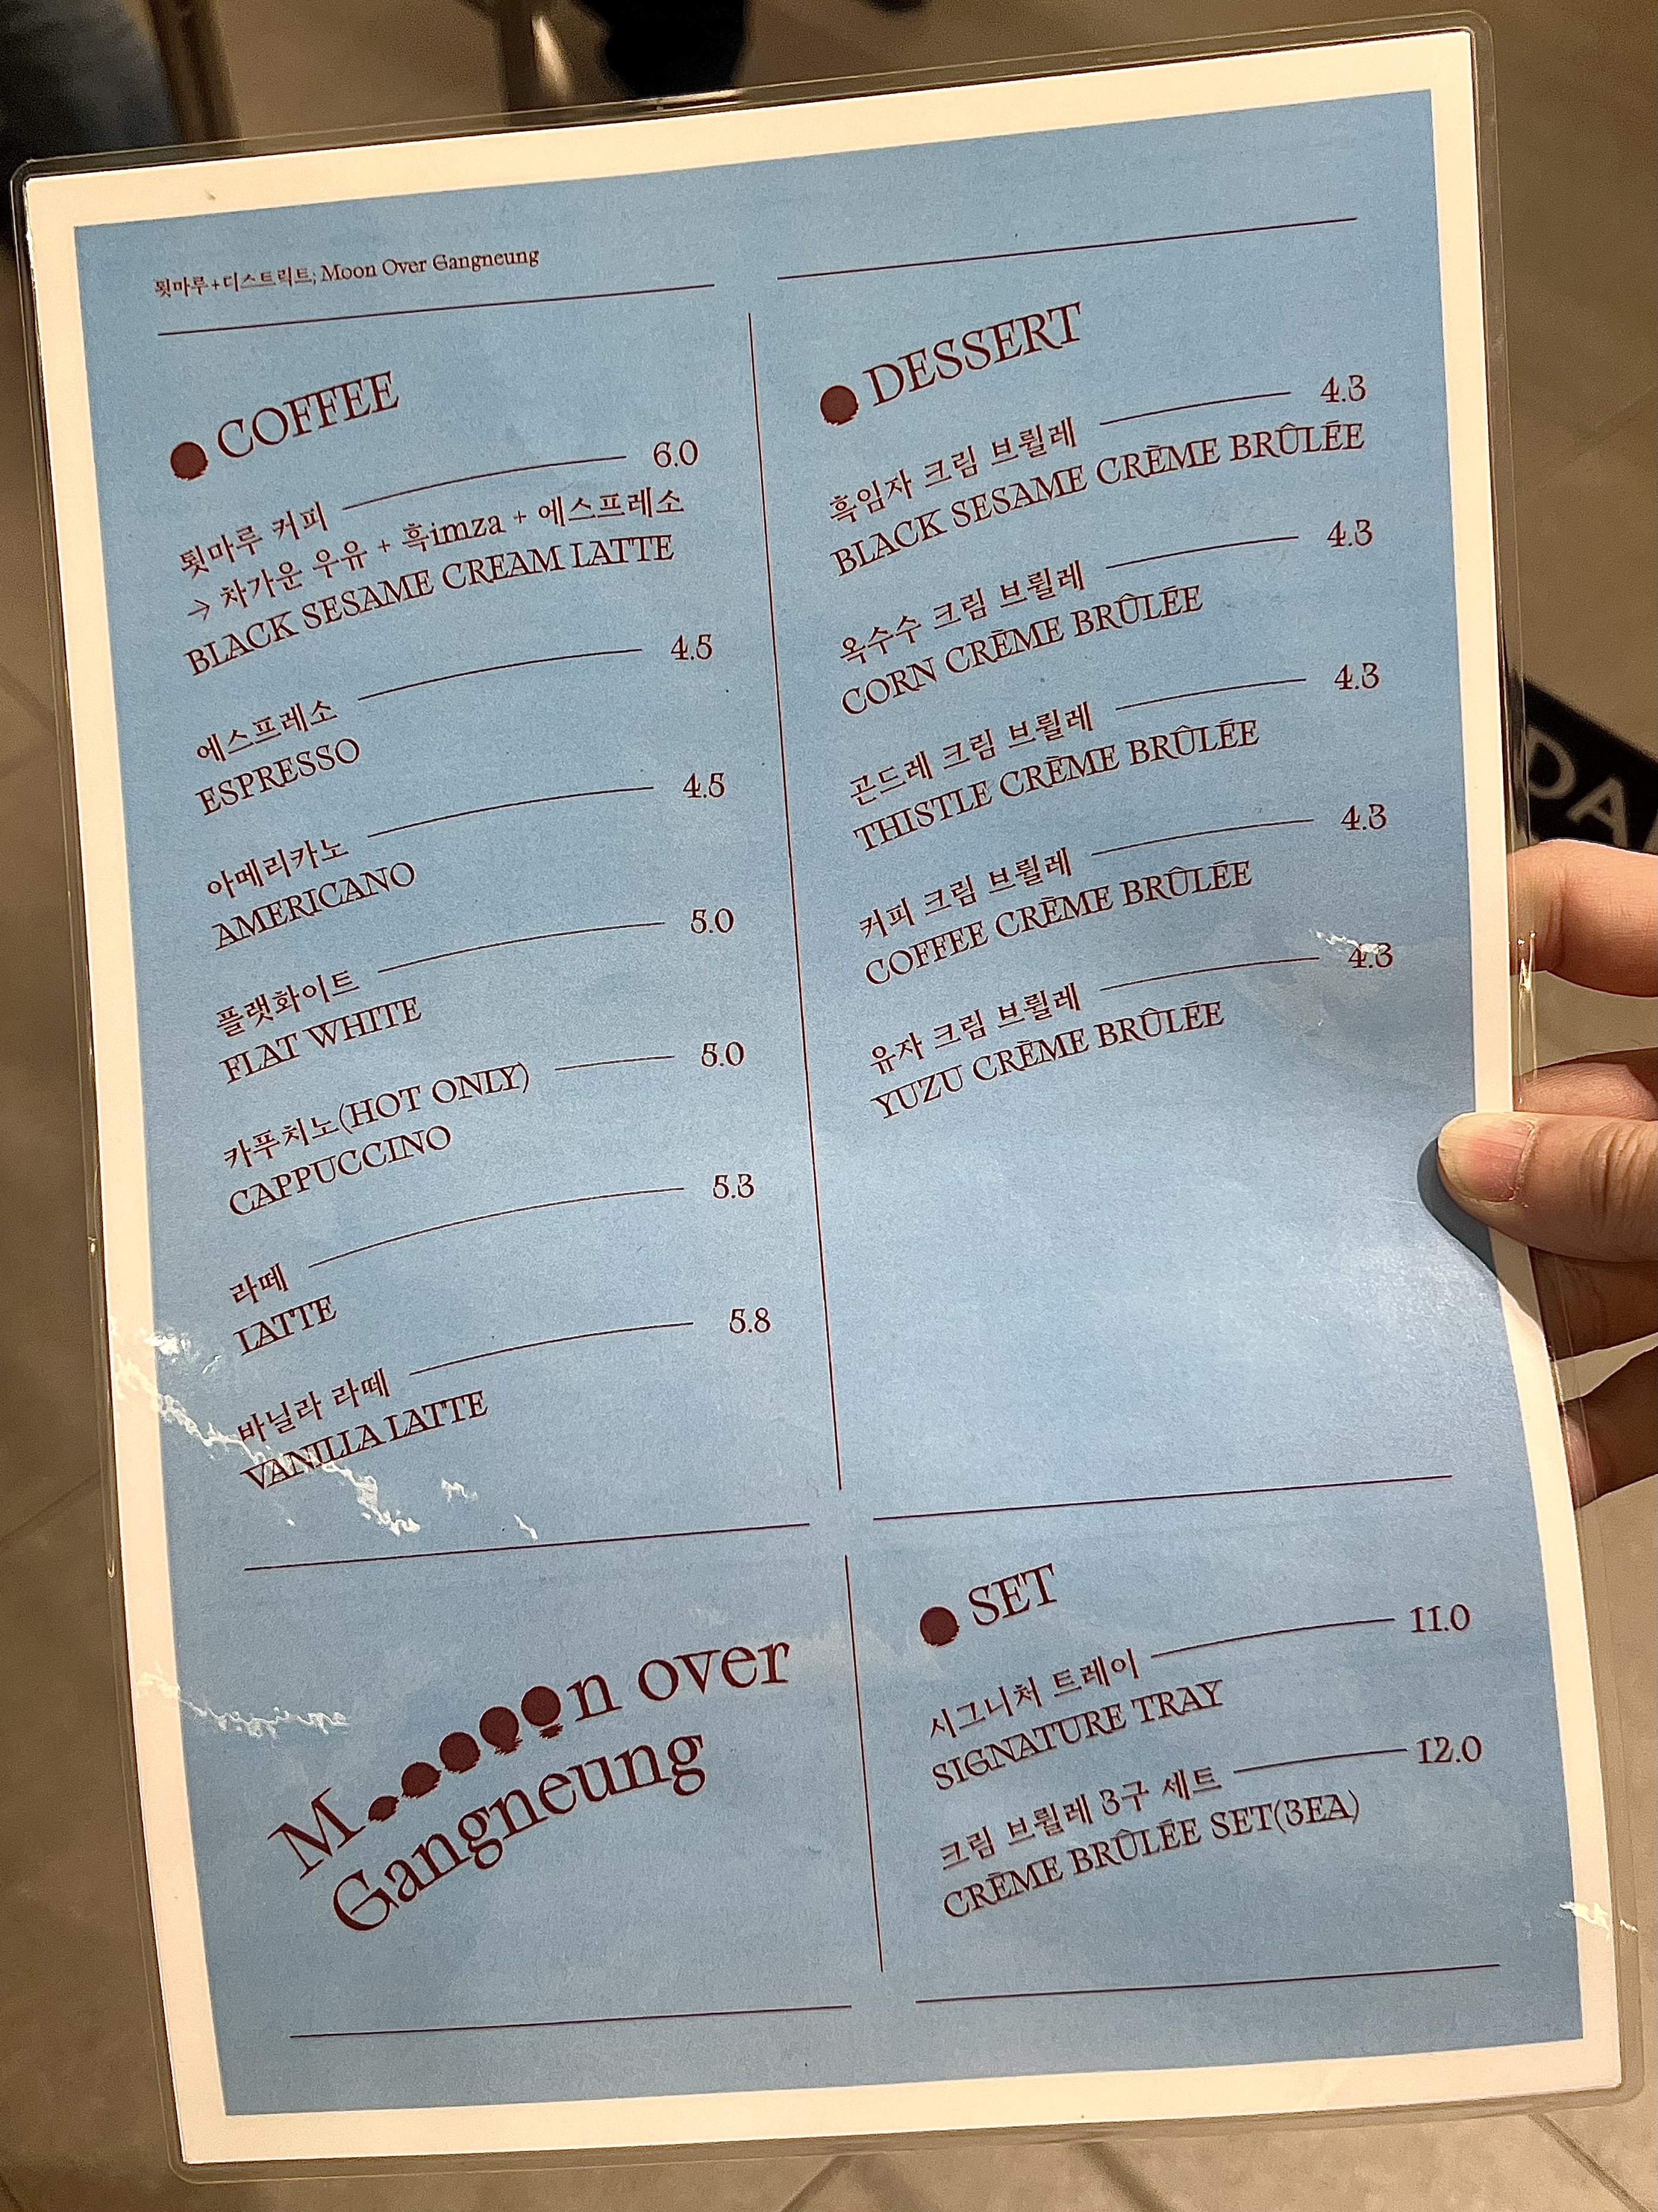 툇마루+디스트릭트; Moon Over Gangneung
COFFEE
툇마루 커피 6.0
→ 차가운 우유 + 흑imza + 에스프레소
BLACK SESAME CREAM LATTE
에스프레소 4.5
ESPRESSO
아메리카노 4.5
AMERICANO
플랫화이트 5.0
FLAT WHITE
카푸치노(HOT ONLY) 5.0
CAPPUCCINO
라떼 5.3
LATTE
바닐라 라떼 5.8
VANILLA LATTE
DESSERT
흑임자 크림 브륄레 4.3
BLACK SESAME CRÈME BRÛLÉE
옥수수 크림 브륄레 4.3
CORN CRÈME BRÛLÉE
곤드레 크림 브륄레 4.3
THISTLE CRÈME BRÛLÉE
커피 크림 브륄레 4.3
COFFEE CRÈME BRÛLÉE
유자 크림 브륄레 4.3
YUZU CRÈME BRÛLÉE
Mooooon over
Gangneung
SET
시그니처 트레이 11.0
SIGNATURE TRAY
크림 브륄레 3구 세트 12.0
CRÈME BRÛLÉE SET(3EA)
DA